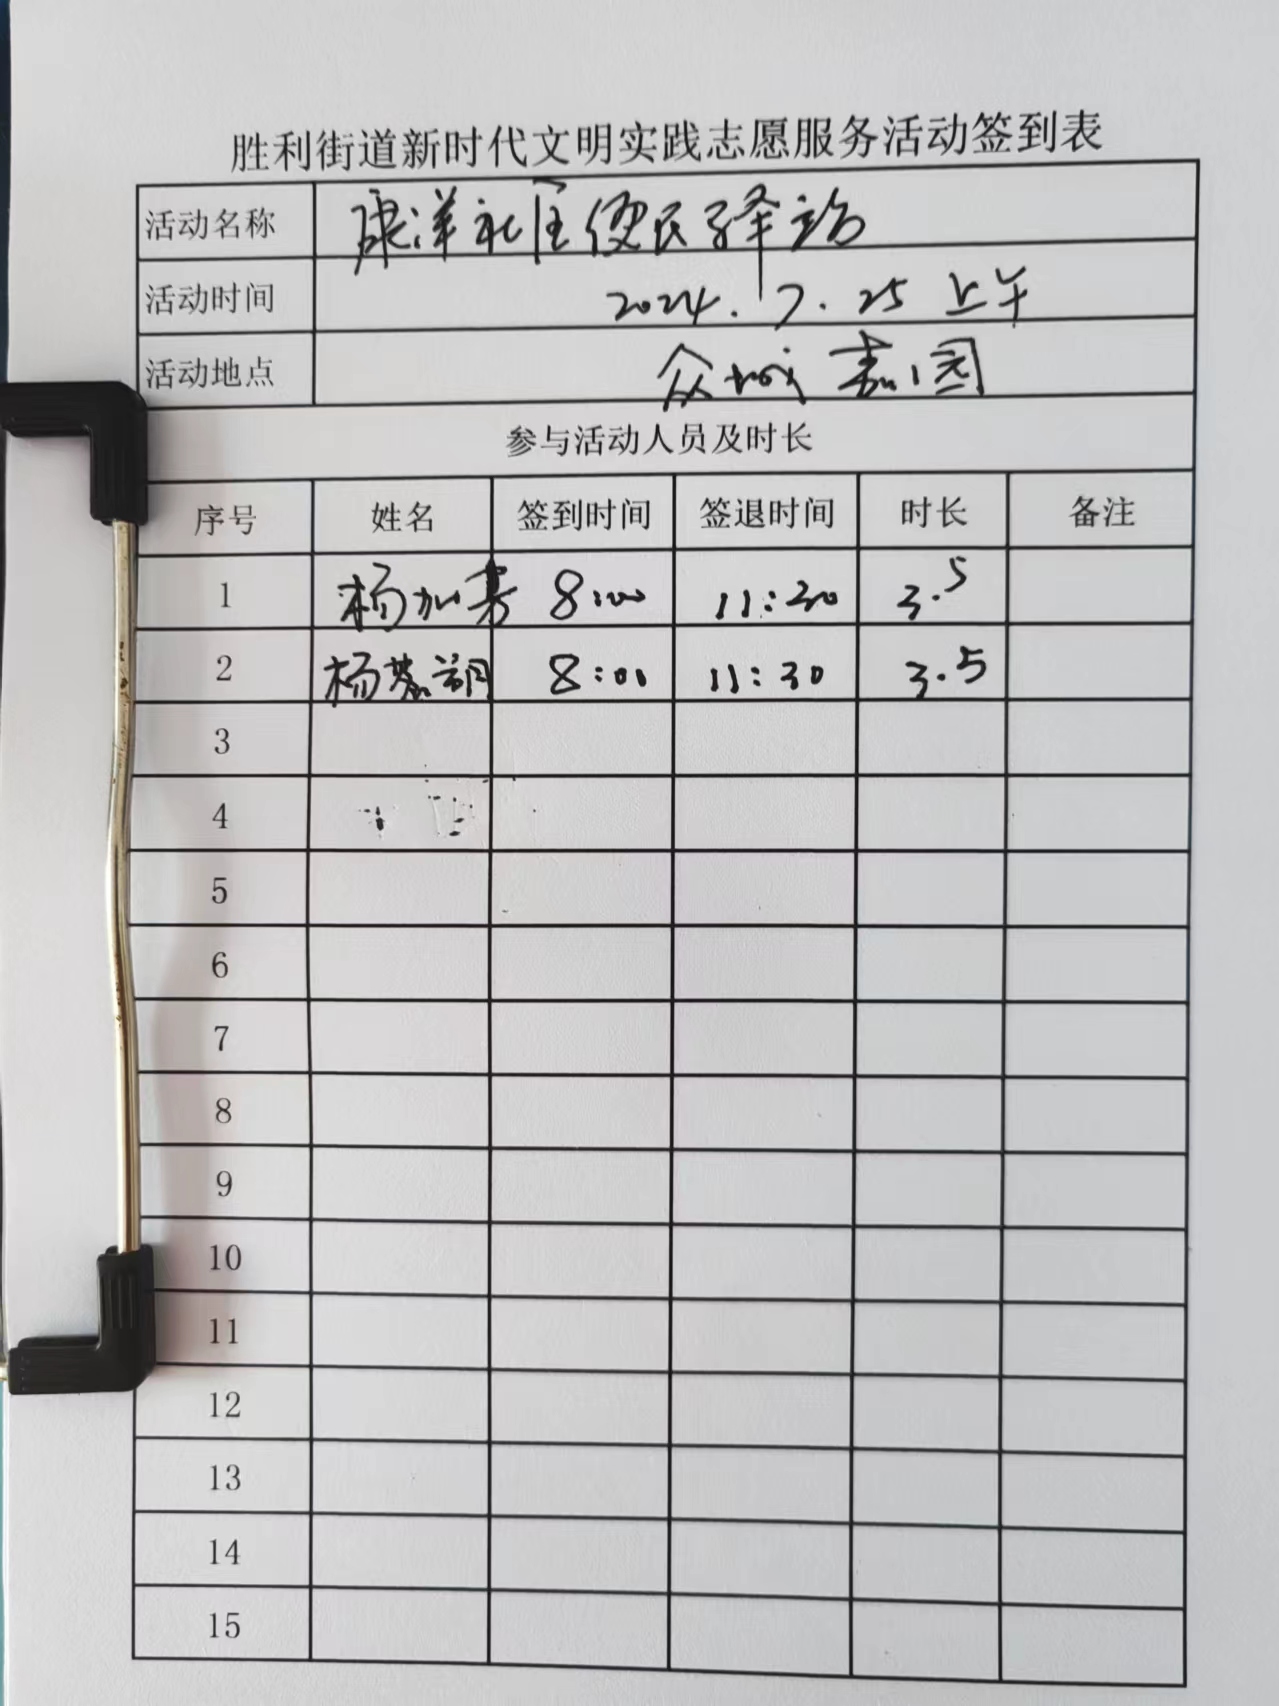 胜利街道新时代文明实践志愿服务活动签到表
活动名称 康洋社区便民驿站
活动时间 2024.7.25 上午
活动地点 众城嘉园
参与活动人员及时长
序号 姓名 签到时间 签退时间 时长 备注
1 杨加寿 8:00 11:30 3.5
2 杨 8:00 11:30 3.5
3
4
5
6
7
8
9
10
11
12
13
14
15